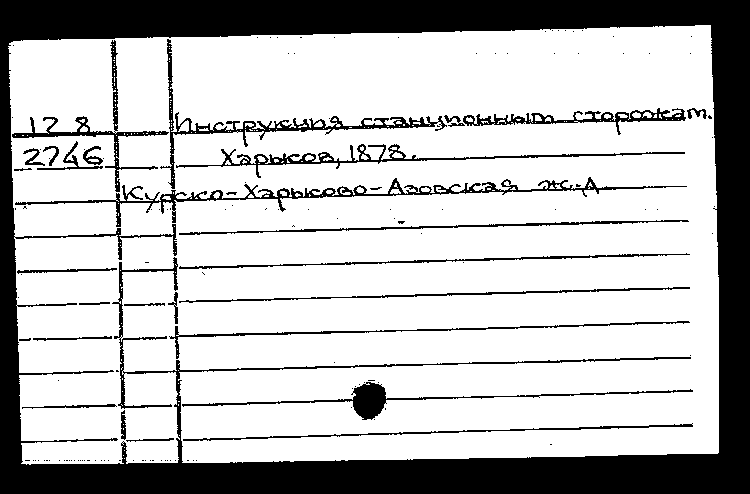 12 8 Инструкция станционным сторожам.
2746 Харьков, 1878.
Курско-Харьково-Азовская ж.д